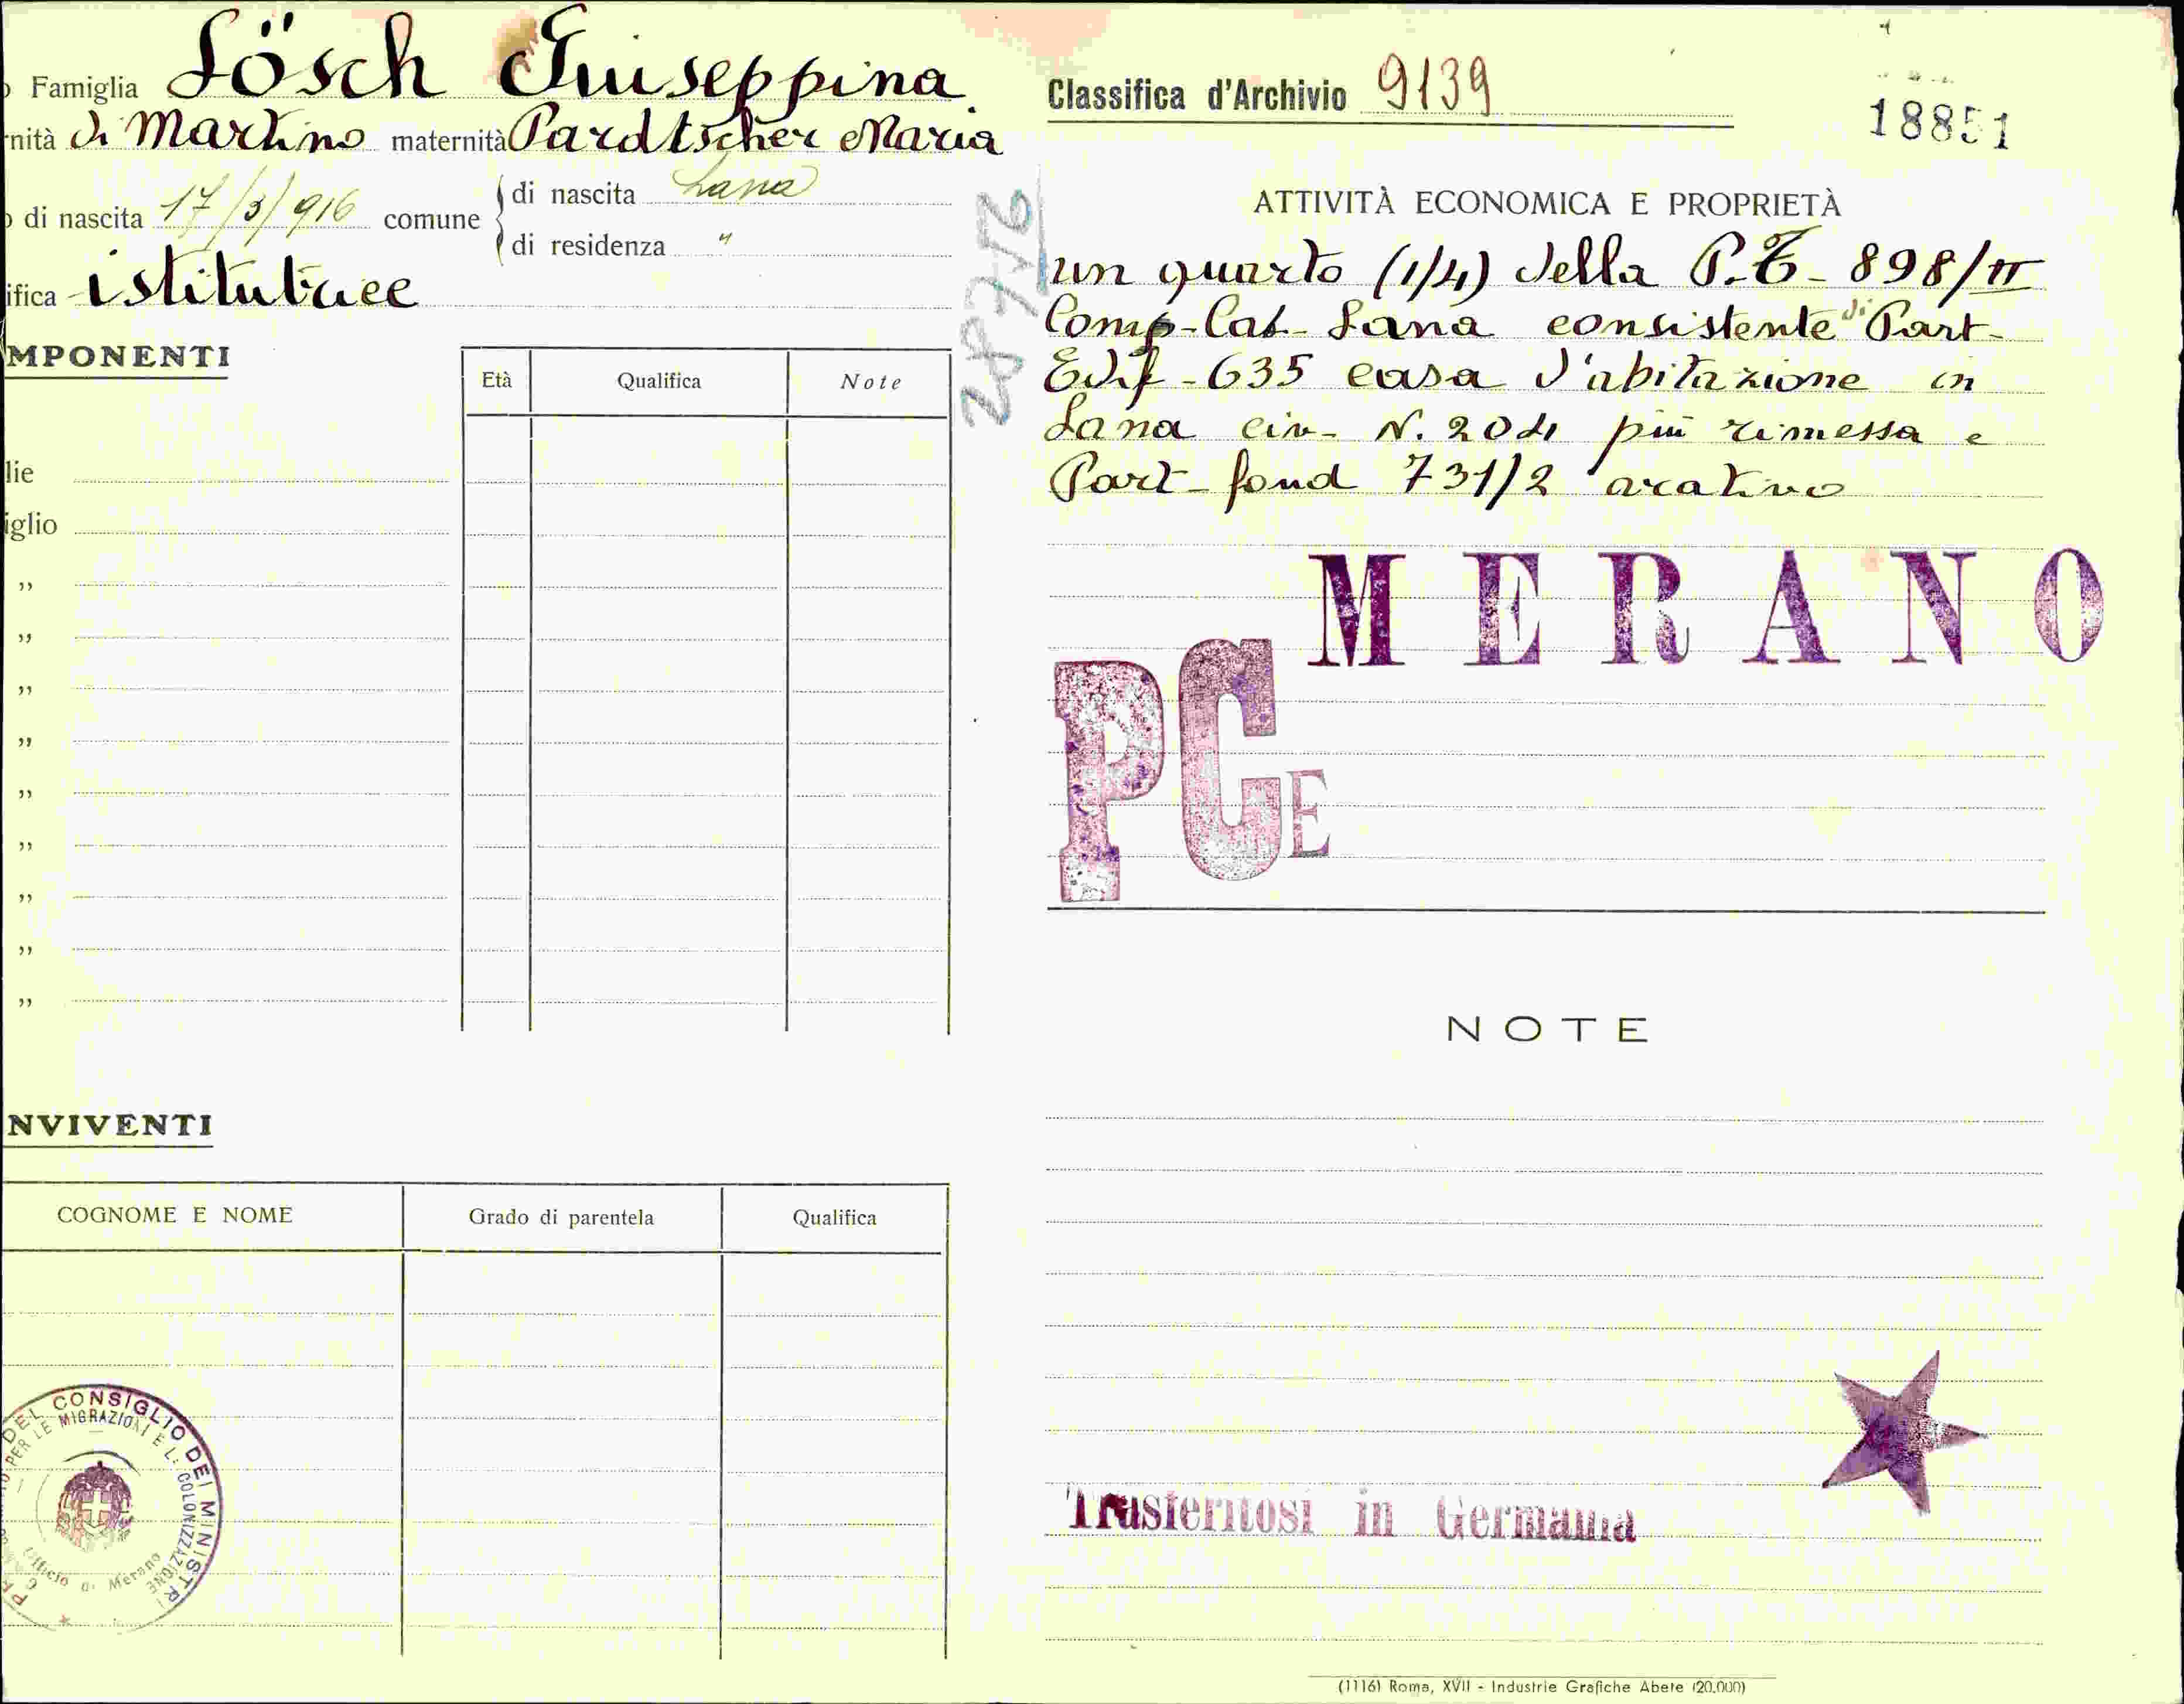 Famiglia Lösch Giuseppina
nità di Martino maternità Pardtscher Maria
di nascita 17/3/916 comune di nascita Lana
di residenza "
ifica istitutrice
MPONENTI
Età Qualifica Note
lie
iglio
"
"
"
"
"
"
"
"
"
NVIVENTI
COGNOME E NOME Grado di parentela Qualifica
DEL CONSIGLIO DEI MINISTRI
PER LE MIGRAZIONI E L. COLONIZZAZIONE
Ufficio di Merano
28716
Classifica d'Archivio 9139
18851
ATTIVITÀ ECONOMICA E PROPRIETÀ
un quarto (1/4) della P.T- 898/II
Comp-Cat- Lana consistente di Part-
Edif - 635 casa d'abitazione in
Lana civ- N. 204 più rimessa e
Part- fond 731/2 arativo
MERANO
PCE
NOTE
Trasferitosi in Germania
(1116) Roma, XVII - Industrie Grafiche Abete (20.000)